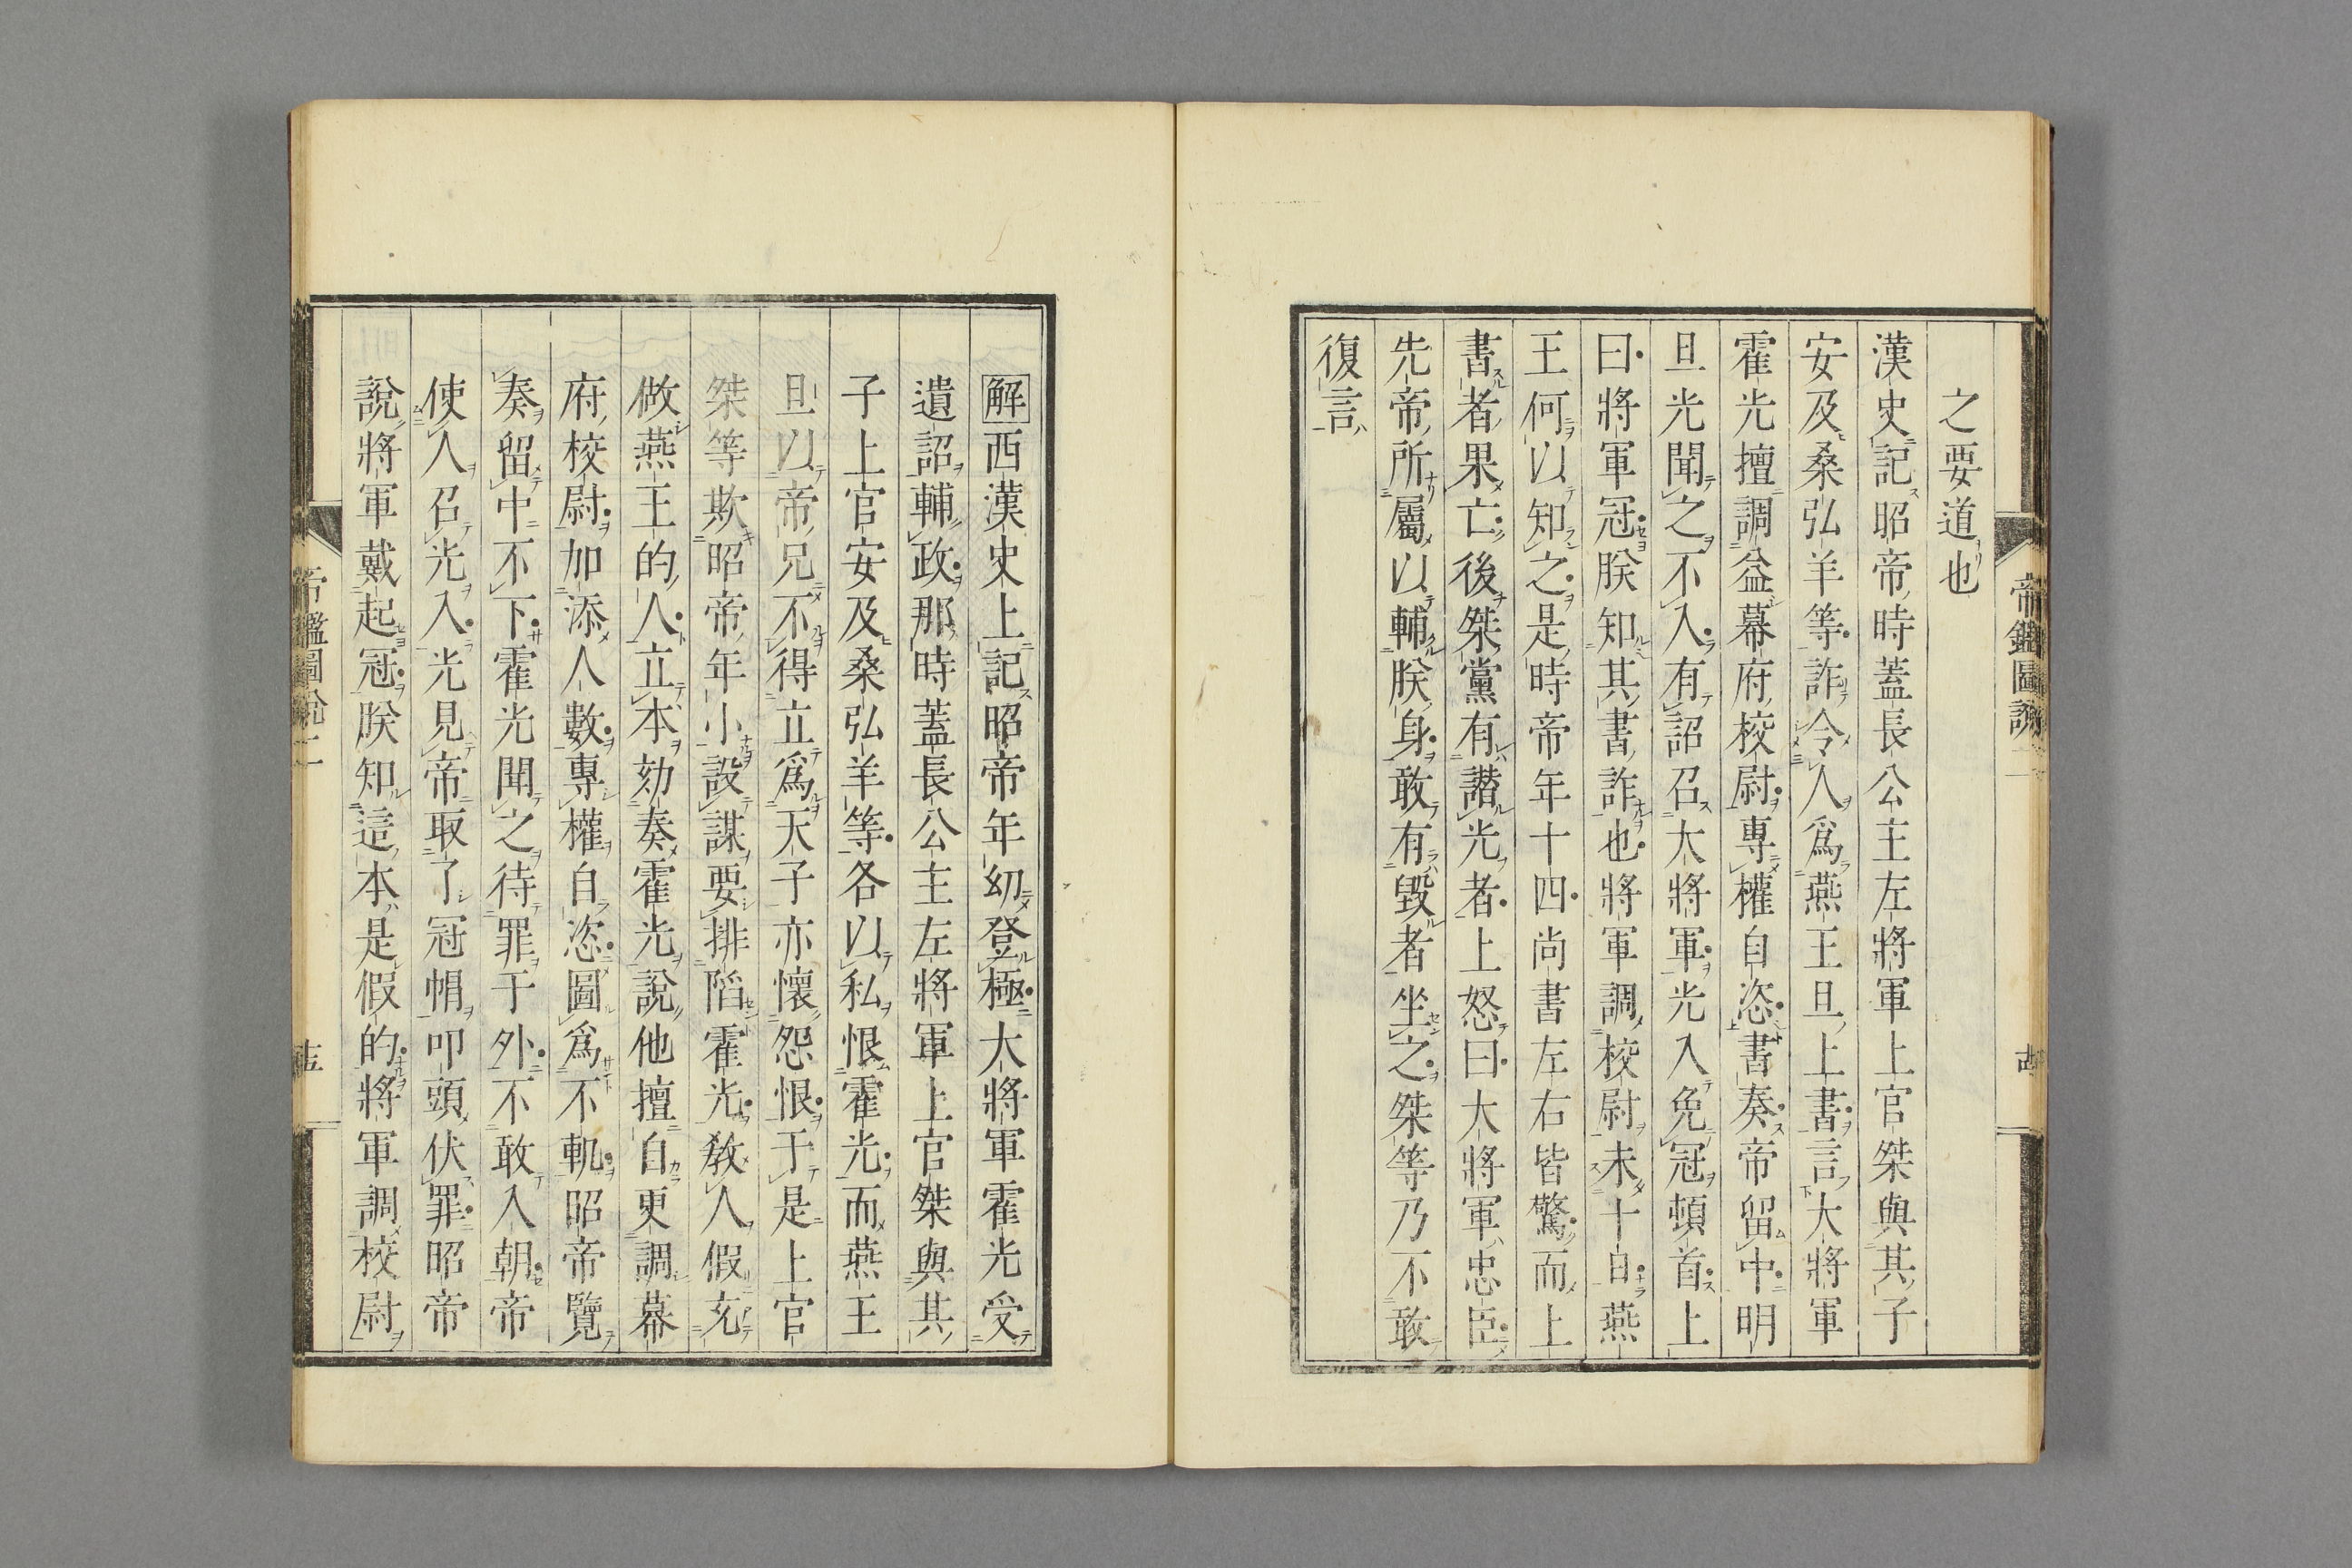 之要道也
漢史記昭帝時蓋長公主左將軍上官桀與其子
安及桑弘羊等詐令人爲燕王旦上書言大將軍
霍光擅調益幕府校尉專權自恣書奏帝留中明
旦光聞之不入有詔召大將軍光入免冠頓首上
曰將軍冠朕知其書詐也將軍調校尉未十日燕
王何以知之是時帝年十四尚書左右皆驚而上
書者果亡後桀黨有譖光者上怒曰大將軍忠臣
先帝所屬以輔朕身敢有毀者坐之桀等乃不敢
復言
解西漢史上記昭帝年幼登極大將軍霍光受
遺詔輔政那時蓋長公主左將軍上官桀與其
子上官安及桑弘羊等各以私恨霍光而燕王
旦以帝兄不得立爲天子亦懷怨恨于是上官
桀等欺昭帝年小設謀要排陷霍光教人假充
做燕王的人立本劾奏霍光說他擅自更調幕
府校尉加添人數專權自恣圖爲不軌昭帝覽
奏留中不下霍光聞之待罪于外不敢入朝帝
使人召光入光見帝取了冠帽叩頭伏罪昭帝
說將軍戴起冠朕知這本是假的將軍調校尉
帝鑑圖說
帝鑑圖說